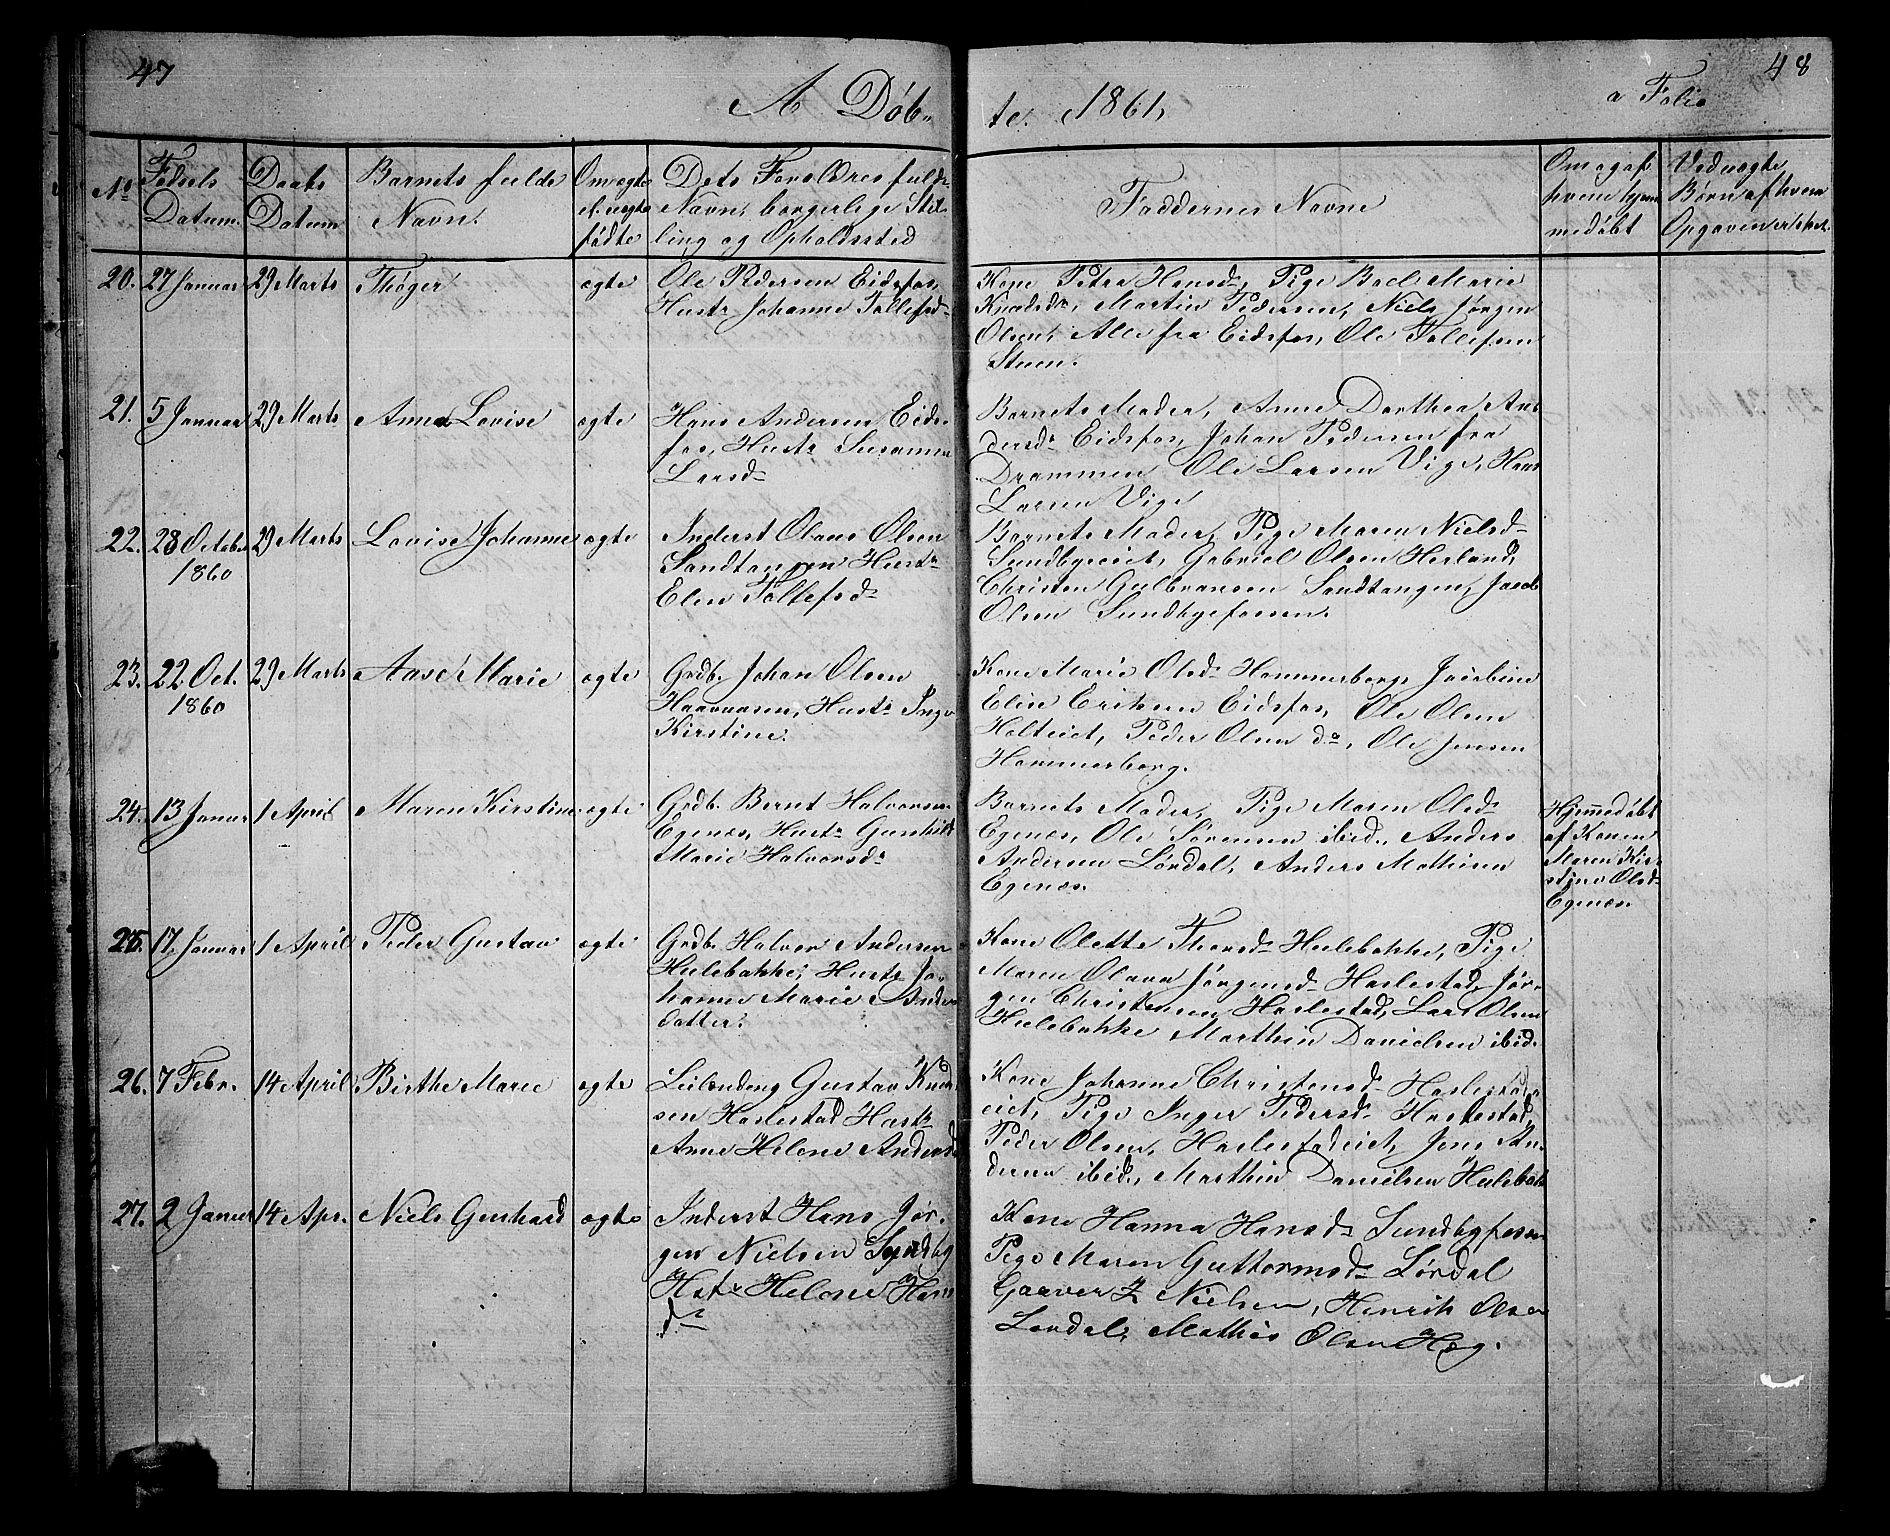 47
A Döb-
te. 1861,
a Folio
48
No
Fødsels Datum.
Daabs Datum
Barnets fulde Navn.
Om ægte el. uægte fødte
Dets Forældres fulde Navn, borgerlige Stilling og Opholdssted
Faddernes Navne
Om og af hvem hjemmedøbt
Ved uægte Børn af hvem Opgaven er skeet.
20. 27 Januar 29 Marts Thøger ægte
Ole Pedersen Eidsfos,
Hustr Johanne Tollefsd-
Kone Petra Hansd, Pige Boel Marie
Knudsdr, Martin Pedersen, Niels Jørgen
Olsen, Alle fra Eidsfos, Ole Tollefsen
Steen.
21. 5 Januar 29 Marts Anne Lovise ægte
Hans Andersen Eids-
fos, Hustr Susanne
Larsd-
Barnets Moder, Anne Dorthea An-
dersdr Eidsfos, Johan Pedersen fra
Drammen Ole Larsen Vige, Hans
Larsen Vige
22. 28 October 1860 29 Marts Lovise Johanne ægte
Inderst Olaus Olsen
Sandtangen Hustr
Elen Tollefsd-
Barnets Moder, Pige Maren Nielsd-
Sundbyeiet, Gabriel Olsen Herland,
Christen Gulbransen Sandtangen, Jacob
Olsen Sundbyefossen.
23. 22 Oct. 1860 29 Marts Aase Marie ægte
Grdb. Johan Olsen
Haavaasen, Hustr Inge
Kirstine.
Kone Marie Olsd- Hammerborg, Jacobine
Elise Eriksen Eidsfos, Ole Olsen
Holteiet, Peder Olsen do, Ole Jensen
Hammerborg.
24. 13 Januar 1 April Maren Kirstine ægte
Grdb. Bernt Halvorsen
Egenæs, Hustr Gunhild
Marie Halvorsdr
Barnets Moder, Pige Maren Olsd-
Egenæs, Ole Sörensen ibid., Anders
Andersen Lördal, Anders Mathisen
Egenæs.
Hjemmedöbt
af Konen
Maren Kir-
stine Olsd-
Egenæs.
25. 17 Januar 1 April Peder Gustav ægte
Grdb. Halvor Andersen
Hulebakke, Hustr Jo-
hanne Marie Anders
datter.
Kone Olette Thorsd- Hulebakke, Pige
Maren Olava Jörgensd- Haslestad, Jör-
gen Christensen Haslestad, Lars Olsen
Hulebakke Marthin Danielsen ibid.
26. 7 Febr. 14 April Birthe Marie ægte
Leilending Gustav Knud-
sen Haslestad Hustr
Anne Helene Andersd
Kone Johanne Christensd- Haslestad-
eiet, Pige Inger Pedersd- Haslestad,
Peder Olsen, Haslestadeiet, Jens An-
dersen ibid., Marthin Danielsen Hulebak
27. 2 Januar 14 Apr. Niels Gerhard ægte
Inderst Hans Jör-
gen Nielsen Sundby
Hstr Helene Hans
dr
Kone Hanna Hansd- Sundbyfosen
Pige Maren Guttormsd- Lördal
Garver Z Nielsen, Henrik Olsen
Lördal, Mathis Olsen Hæg.